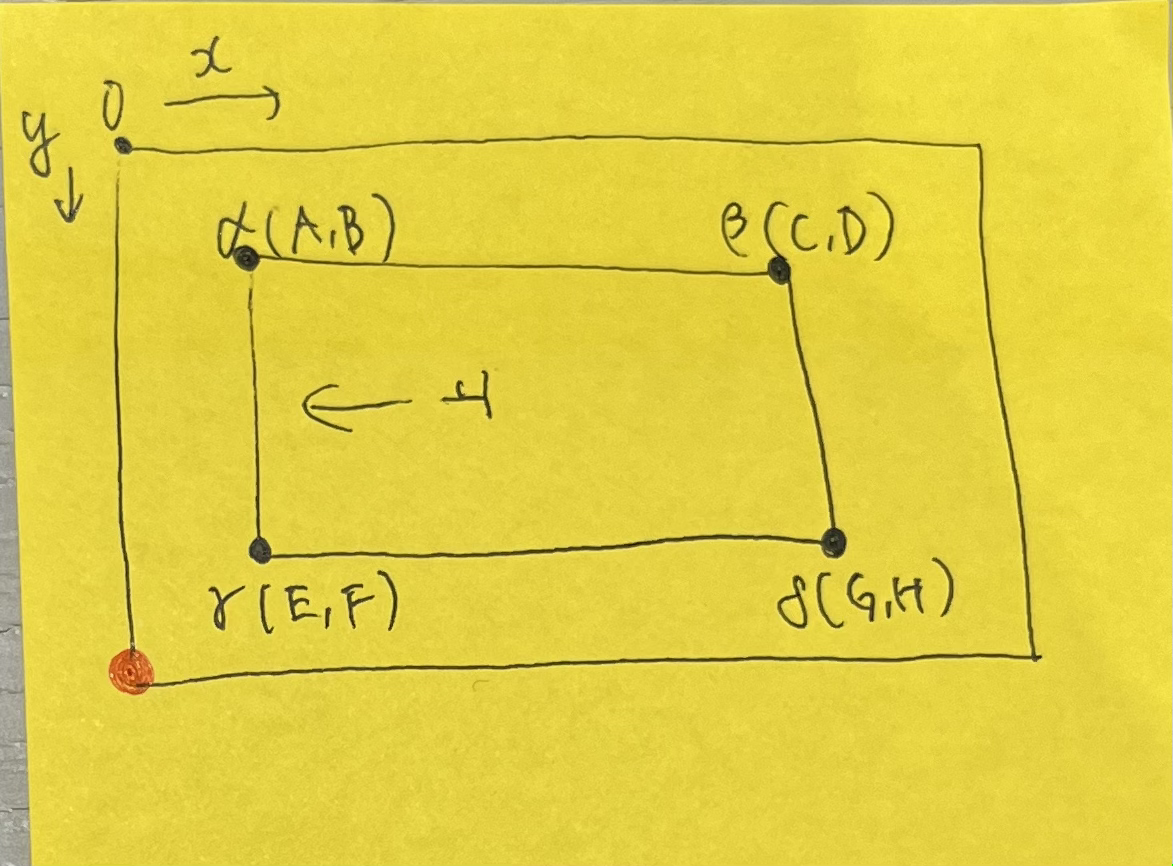 x
y 0
α(A,B) β(C,D)
γ(E,F) δ(G,H)